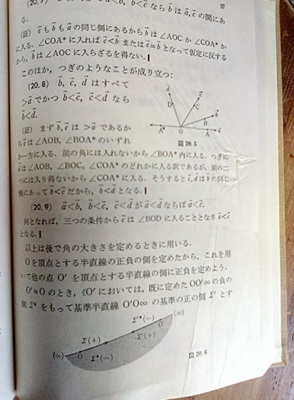 b<c なら b は a, c の間にあ
る.
(証) c も b も a の同じ側にあるから b は ∠AOC か ∠COA* か
に入る. ∠COA* に入れば c<b または c=b となって仮定に反する
から, b は ∠AOC に入らざるを得ない. |
このほか, つぎのようなことが成り立つ:
(20.8) b, c, d はすべて
>a でかつ b<c, c<d なら
b<d.
(証) まず b, c は >a であるか
∠AOB, ∠BOA* のいずれ
か一方に入る. 前の角には入れないから ∠BOA* 内に入る. つぎに
d は ∠AOB, ∠BOC, ∠COA* のどれかに入る訳であるが, 前の二
つには入り得ないから ∠COA* に入る. そうすると c, d は b の同じ
側にあって b<c だから, b<d となる. |
(20.9) a<b, b<c, c<d が a<d ならば a<c.
何となれば, 三つの条件から c は ∠BOD に入ることとなり a<c
となる. |
以上は後で角の大きさを定めるときに用いる.
O を頂点とする半直線の正負の側を定めたから, これを用
いて他の点 O' を頂点とする半直線の側に正負を定めよう.
O'≠O のとき, (O' においては, 既に定めた OO'∞ の負の
側 Σ* をもって基準半直線 O'O∞ の基準の正の側 Σ' とす
A* O A
B C D
図 20.5
(∞) O O' (∞)
Σ(+) Σ'(+)
Σ*(−) Σ'*(−)
図 20.6